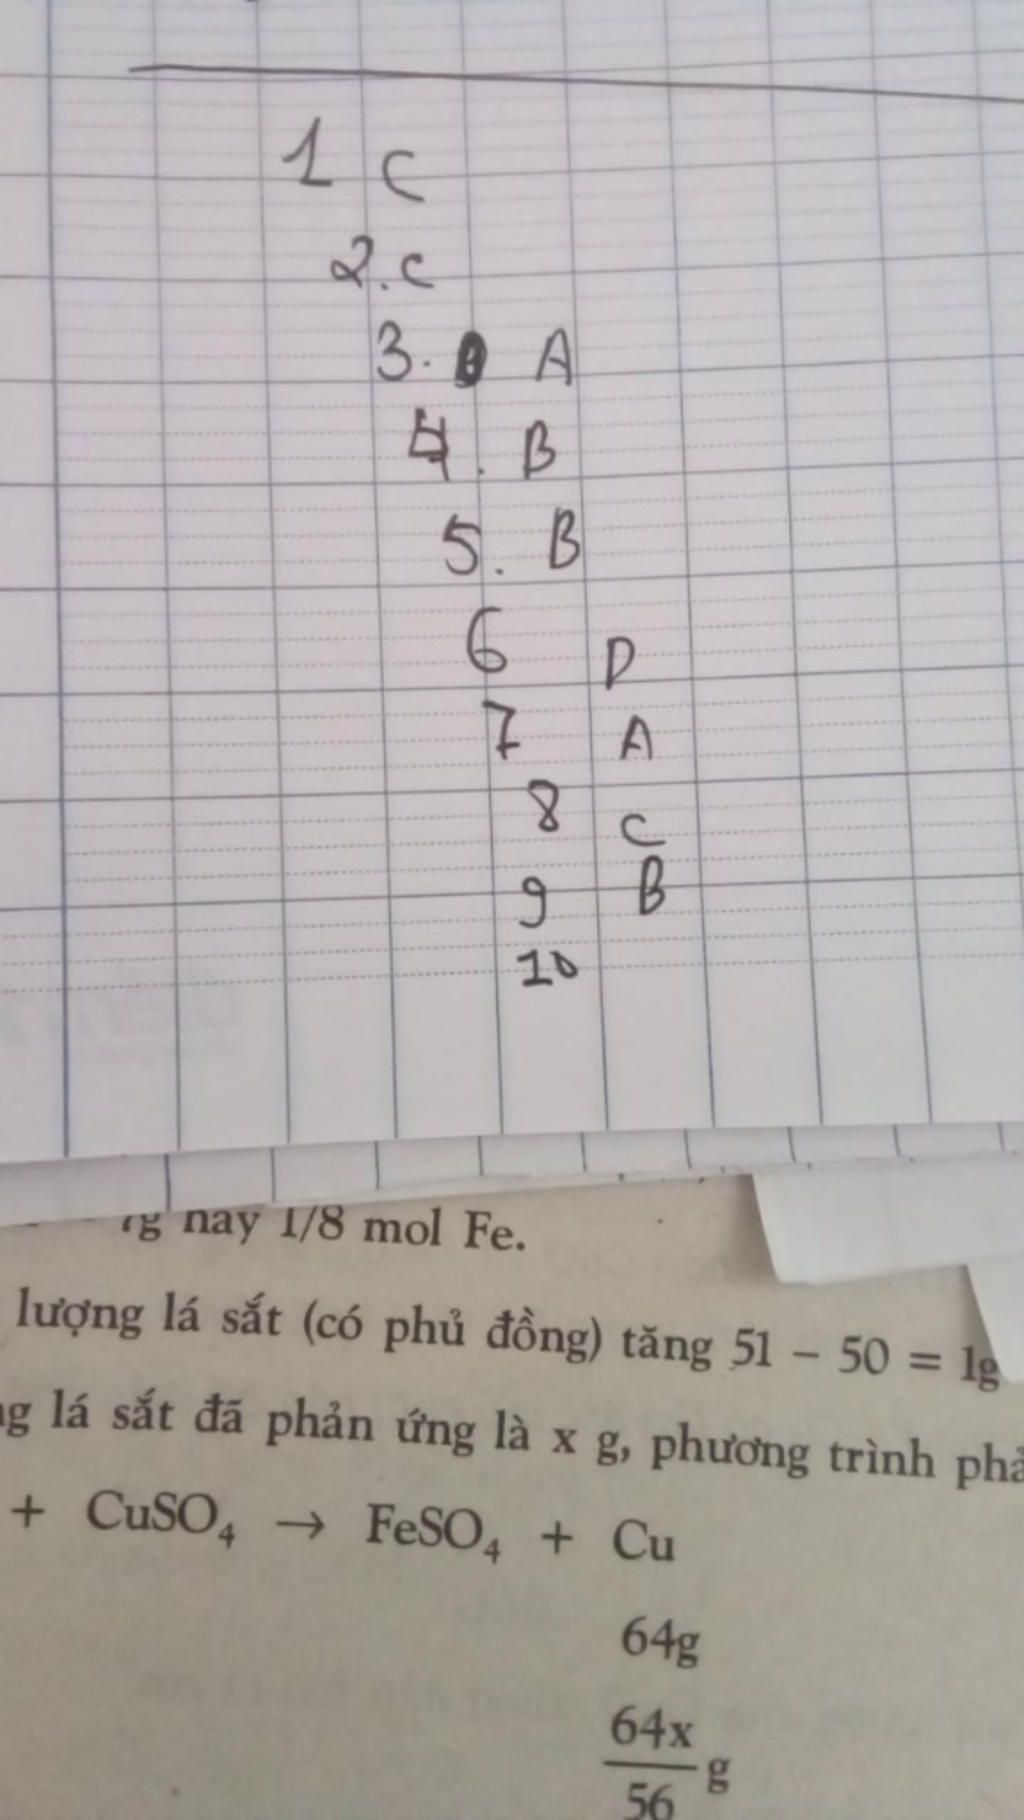 1 C
2. C
3. A
4. B
5. B
6 D
7 A
8 C
9 B
10
hay 1/8 mol Fe.
lượng lá sắt (có phủ đồng) tăng 51 - 50 = 1g
lá sắt đã phản ứng là x g, phương trình
+ CuSO₄ → FeSO₄ + Cu
64g
64x
56 g